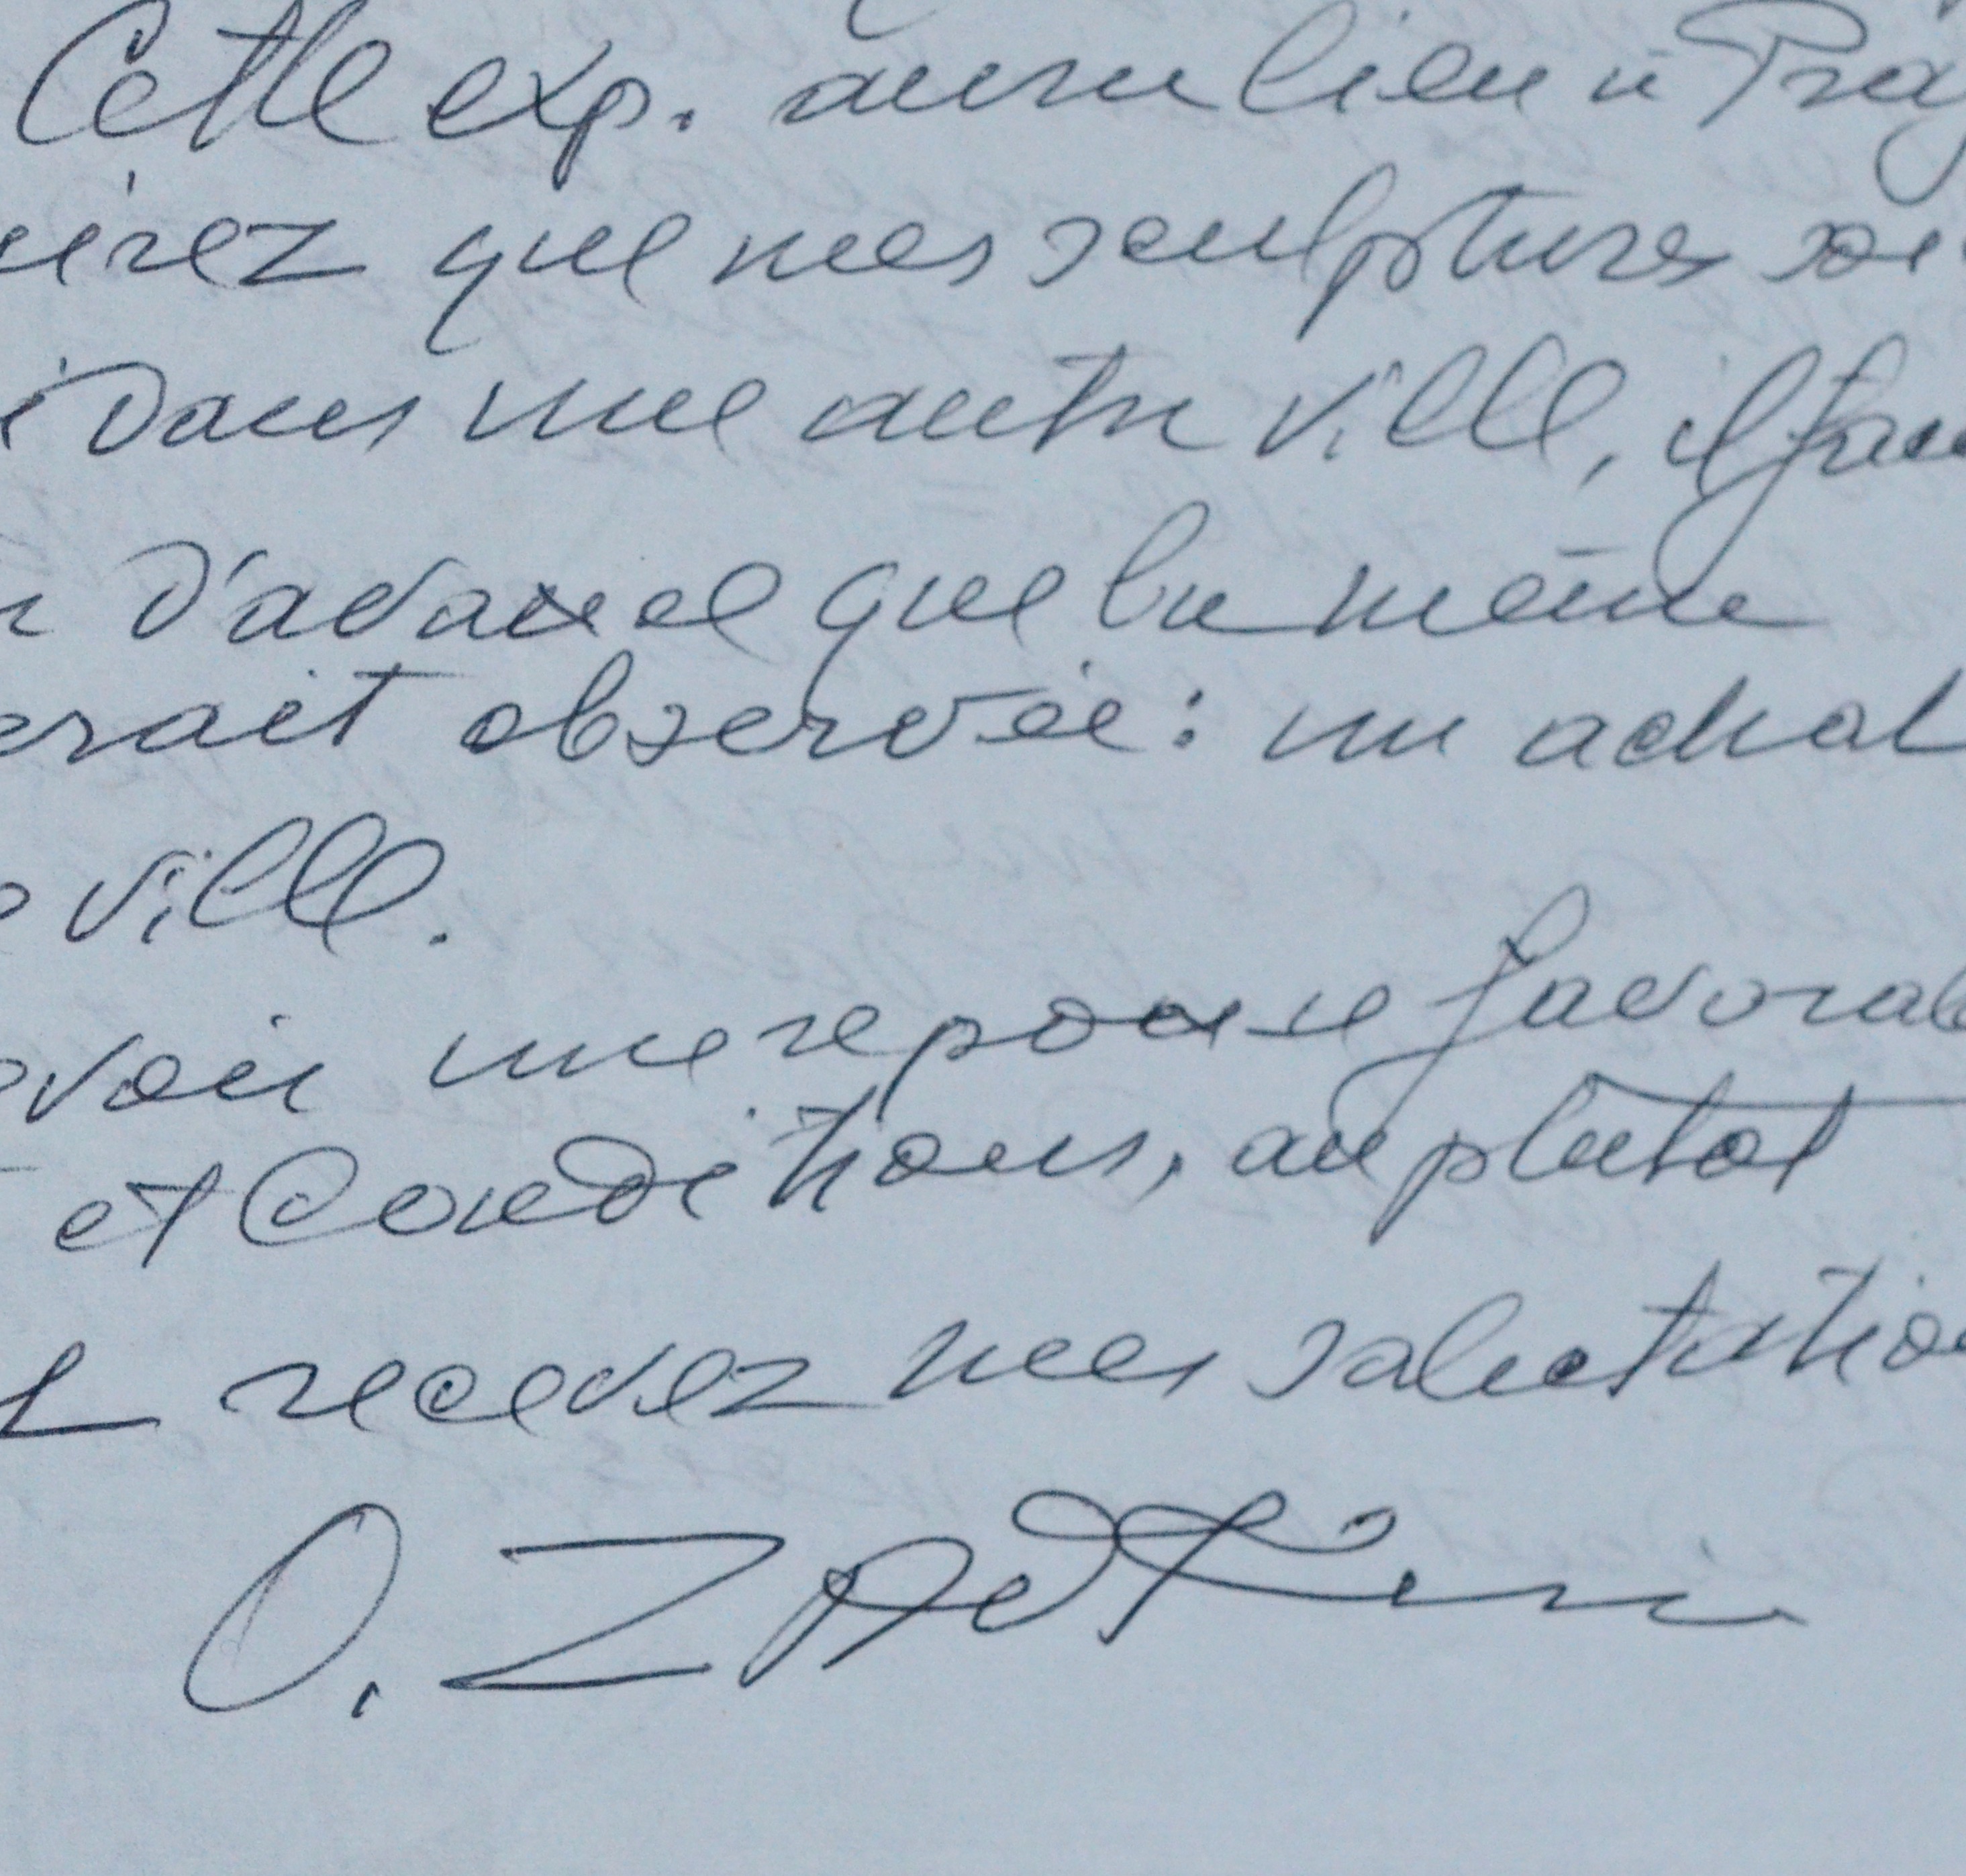 Cette exp. aura lieu à Prag
irez que mes sculptures soi
Dans une autre ville, il fau
d'avance que la même
erait observée: un achat
ville.
voir une reponse favorab
et Conditions, au plutot
recevez mes salutatio
O. Zadkine